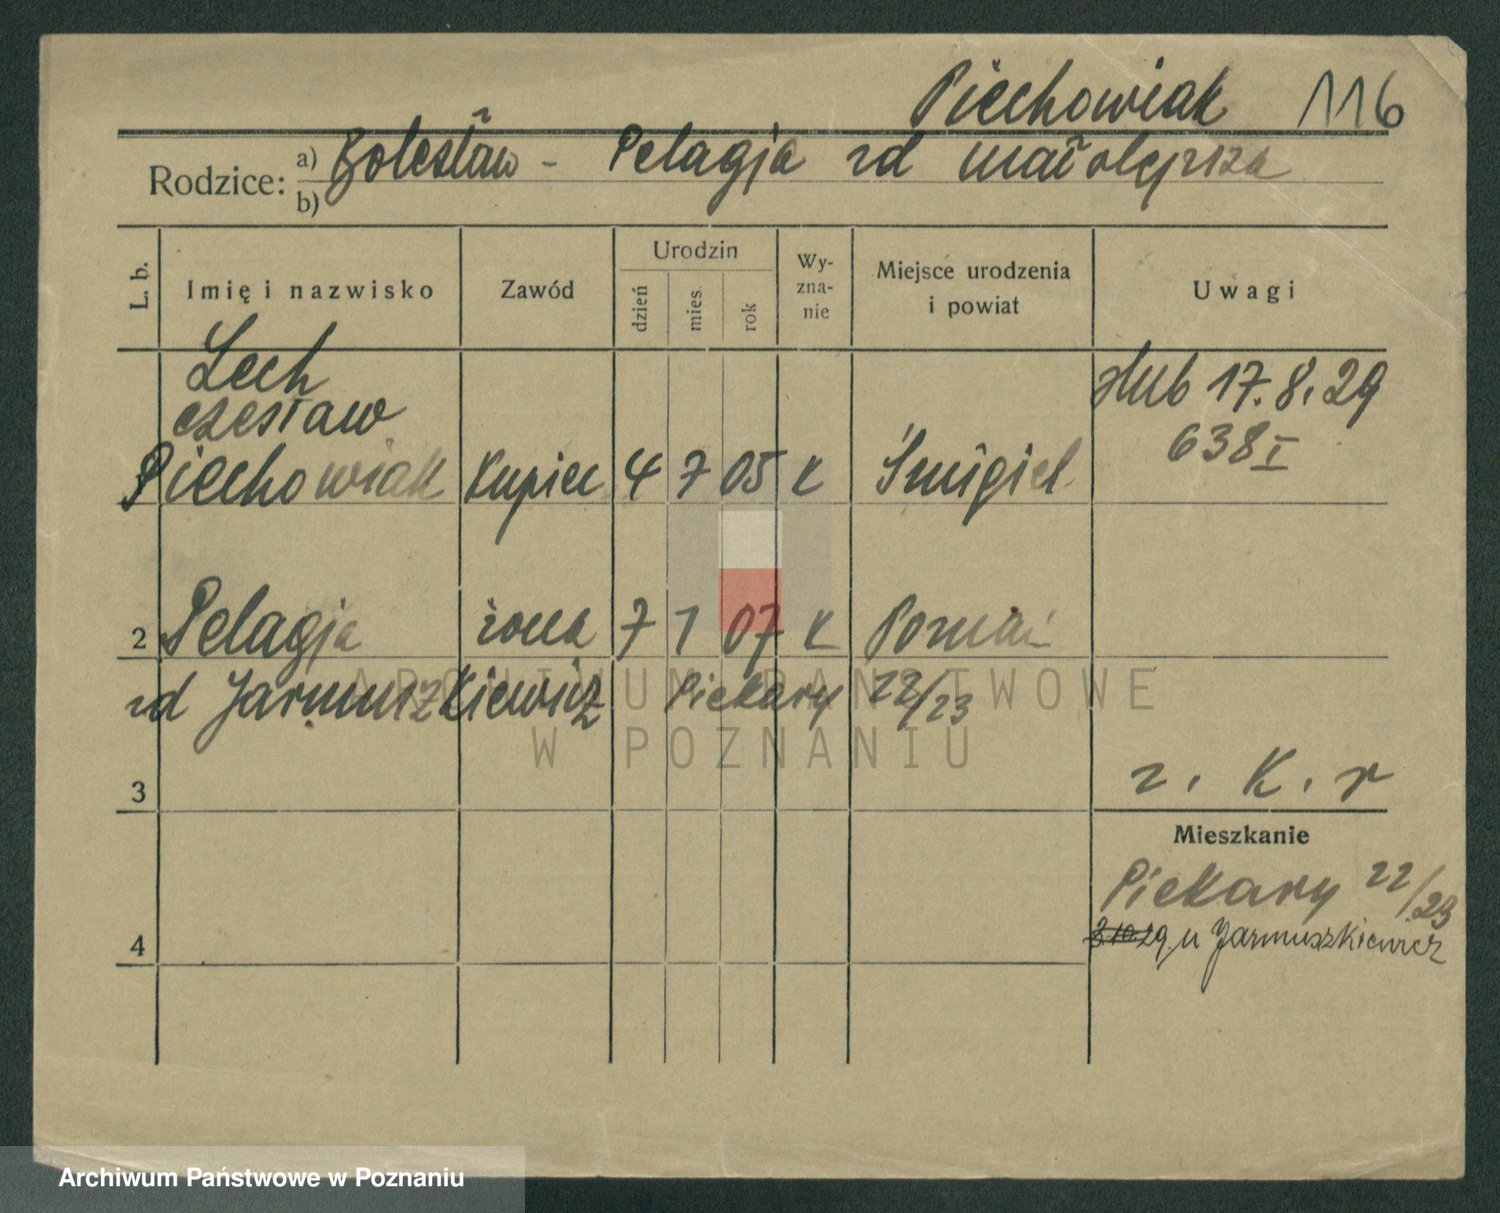 Piechowiak 116
Rodzice: a) Bolesław - Pelagja zd małolepsza
b)
L. b. Imię i nazwisko Zawód Urodzin dzień mies. rok Wy-zna-nie Miejsce urodzenia i powiat Uwagi
Lech
czesław
Piechowiak Kupiec 4 7 05 k Śmigiel
ślub 17.8.29
638 I
2 Pelagja żona 7 1 07 k Poznań
zd Jarmuszkiewicz Piekary 22/23
3
z. K. r
Mieszkanie
Piekary 22/23
29 u Jarmuszkiewicz
4
ARCHIWUM PAŃSTWOWE
W POZNANIU
Archiwum Państwowe w Poznaniu